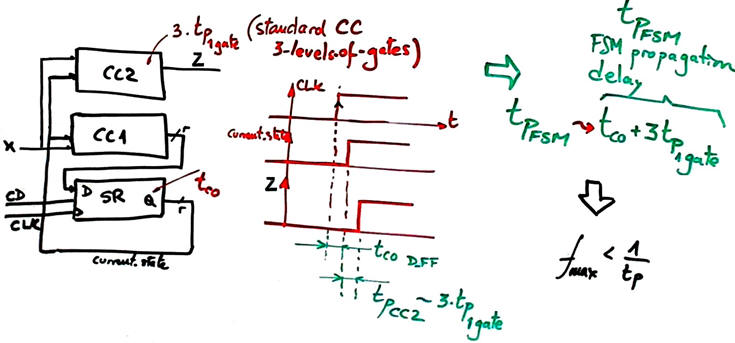 3·tp1gate (standard CC
3-levels-of-gates)
CC2
Z
CC1
r
X
D SR Q
tCO
r
CD
CLK
current.state
CLK
t
current.state
Z
tCO D_FF
tPCC2 ~ 3·tp1gate
tPFSM
FSM propagation
delay
tPFSM → tCO + 3tp1gate
fmax < 1/tp